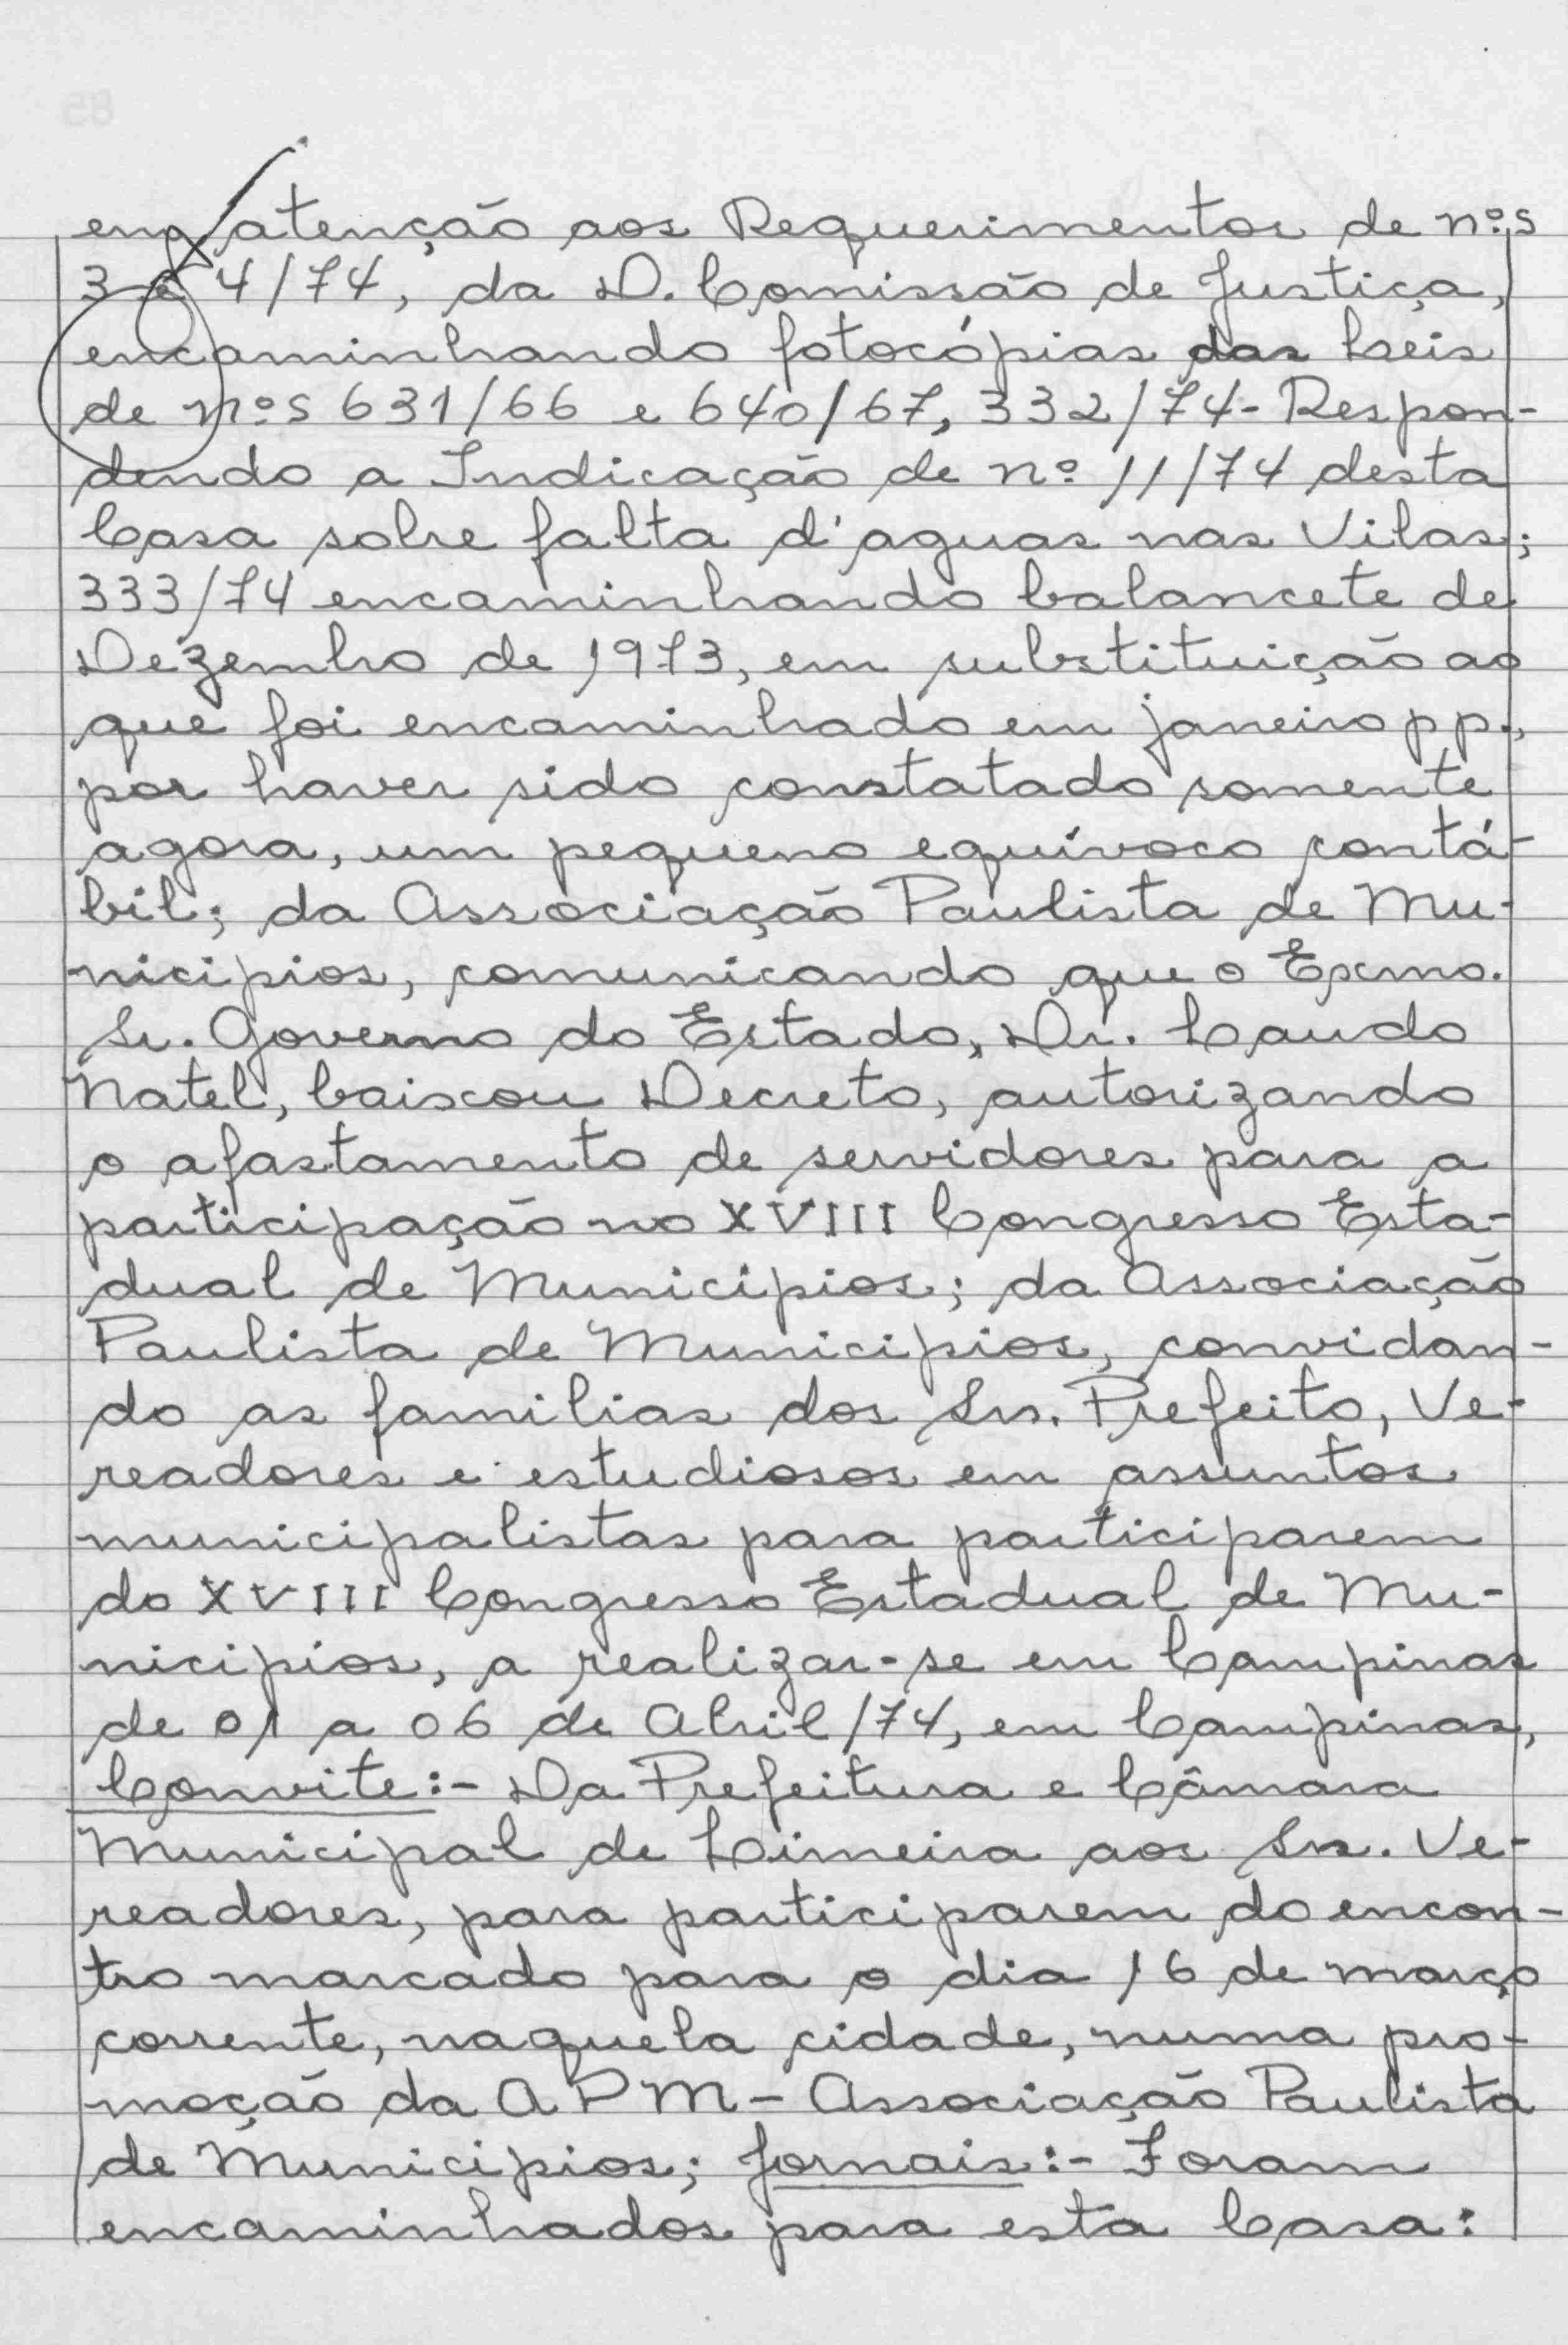 em atenção aos Requerimentos de nºs
3 e 4/74, da D. Comissão de Justiça,
encaminhando fotocópias das Leis
de nºs 631/66 e 640/67, 332/74 - Respon-
dendo a Indicação de nº 11/74 desta
Casa sobre falta d'aguas nas Vilas;
333/74 encaminhando balancete de
Dezembro de 1973, em substituição ao
que foi encaminhado em janeiro pp.,
por haver sido constatado somente
agora, um pequeno equívoco contá-
bil; da Associação Paulista de Mu-
nicipios, comunicando que o Exmo.
Sr. Governo do Estado, Dr. Laudo
Natel, baixou Decreto, autorizando
o afastamento de servidores para a
participação no XVIII Congresso Esta-
dual de Municipios; da Associação
Paulista de Municipios, convidan-
do as familias dos Srs. Prefeito, Ve-
readores e estudiosos em assuntos
municipalistas para participarem
do XVIII Congresso Estadual de Mu-
nicipios, a realizar-se em Campinas
de 01 a 06 de Abril/74, em Campinas,
Convite:- Da Prefeitura e Câmara
Municipal de Limeira aos Srs. Ve-
readores, para participarem do encon-
tro marcado para o dia 16 de março
corrente, naquela cidade, numa pro-
moção da APM - Associação Paulista
de Municipios; Jornais:- Foram
encaminhados para esta Casa: